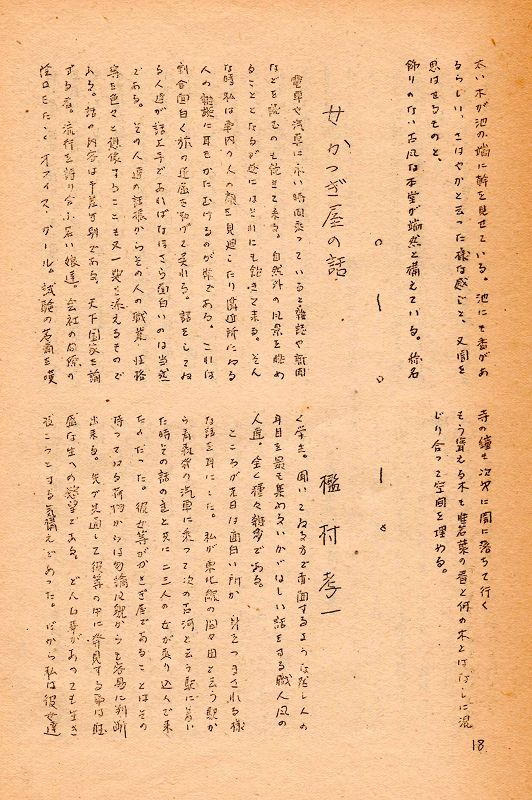 太い木が池の端に幹を見せている。池にも番があ
るらしい、さはやかと云った様な感じと、又闇を
思はせるものと、
飾りのない古風な本堂が端然と構えている。
寺の鐘も次次に闇に落ちて行く
もう聳える木も椎若葉の香と何の木とはなしに混
じり合って空間を埋める。
女かつぎ屋の話
檻村孝一
電車や汽車に永い時間乗っていると雑誌や新聞
などを読むのも飽きて来る。自然外の風景を眺め
ることとなるが遂にはそれにも飽きて来る。そん
な時私は車内の人の顔を見廻したり隣近所にゐる
人の雑談に耳をかたむけるのが常である。これは
割合面白く旅の退屈を紛げて呉れる。話をしてね
る人達が話上手であればなほさら面白いのは当然
である。その人達の話振からその人の職業、性格
等を色々と想像することも又一興を添えるもので
ある。話の内容は千差万別である。天下国家を論
ずる者。流行を語り合ふ若い娘達。会社の同僚の
陰口をたたくオフィス・ガール。試験の苦労を嘆
く学生。聞いてゐる方で赤面するような
耳目を最も集めないかがはしい話をする職人風の
人達。全く種々雑多である。
ところが先日は面白い所か身をつまされる様
な話を耳にした。私が東北線の間々田と云う駅か
ら青森発の汽車に乗って次の古河と云う駅に着い
た時その話の主と共に二三人の女が乗り込んで来
たのだった。彼女等がかつぎ屋であることはその
持ってゐる荷物からは勿論服装からも容易に判断
出来る。先づ共通して彼等の中に発見する事は旺
盛な生への慾望である。どんな事があつても生き
ぬこうとする気構えであった。だから私は彼女達
18